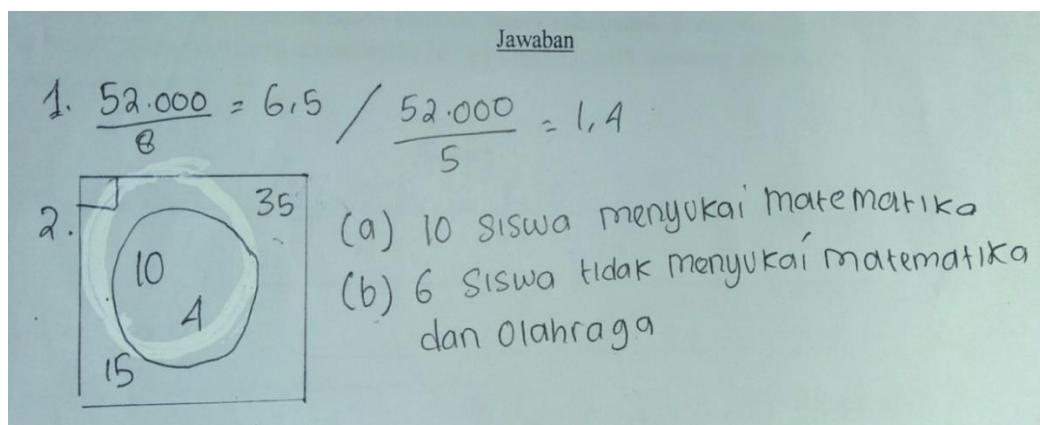 Jawaban
1. 52.000/8 = 6,5 / 52.000/5 = 1,4
2.
35
10
4
15
(a) 10 siswa menyukai matematika
(b) 6 siswa tidak menyukai matematika
dan olahraga